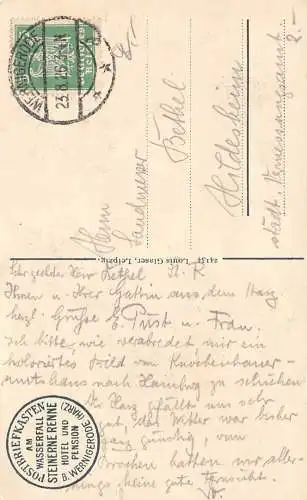 WERNIGERODE
23.8.26
Herrn
Landmesser
Bethel
Hildesheim
städt. Vermessungsamt
24131 Louis Glaser, Leipzig.
Sehr geehrter Herr Bethel
Ihnen u. Ihrer Gattin aus dem Harz
herzl. Grüße E. Pust u. Frau.
Ich bitte, wie verabredet mir ein
koloriertes Bild vom Knochenhauer-
amtshaus nach Hamburg zu schicken
Harz gefällt uns sehr
gut, das Wetter war bisher
günstig, vom
Brocken hatten wir aller-
dings keine gute Fernsicht.
POSTBRIEFKASTEN
AM
WASSERFALL
STEINERNE RENNE
HOTEL UND
PENSION
B. WERNIGERODE (HARZ)